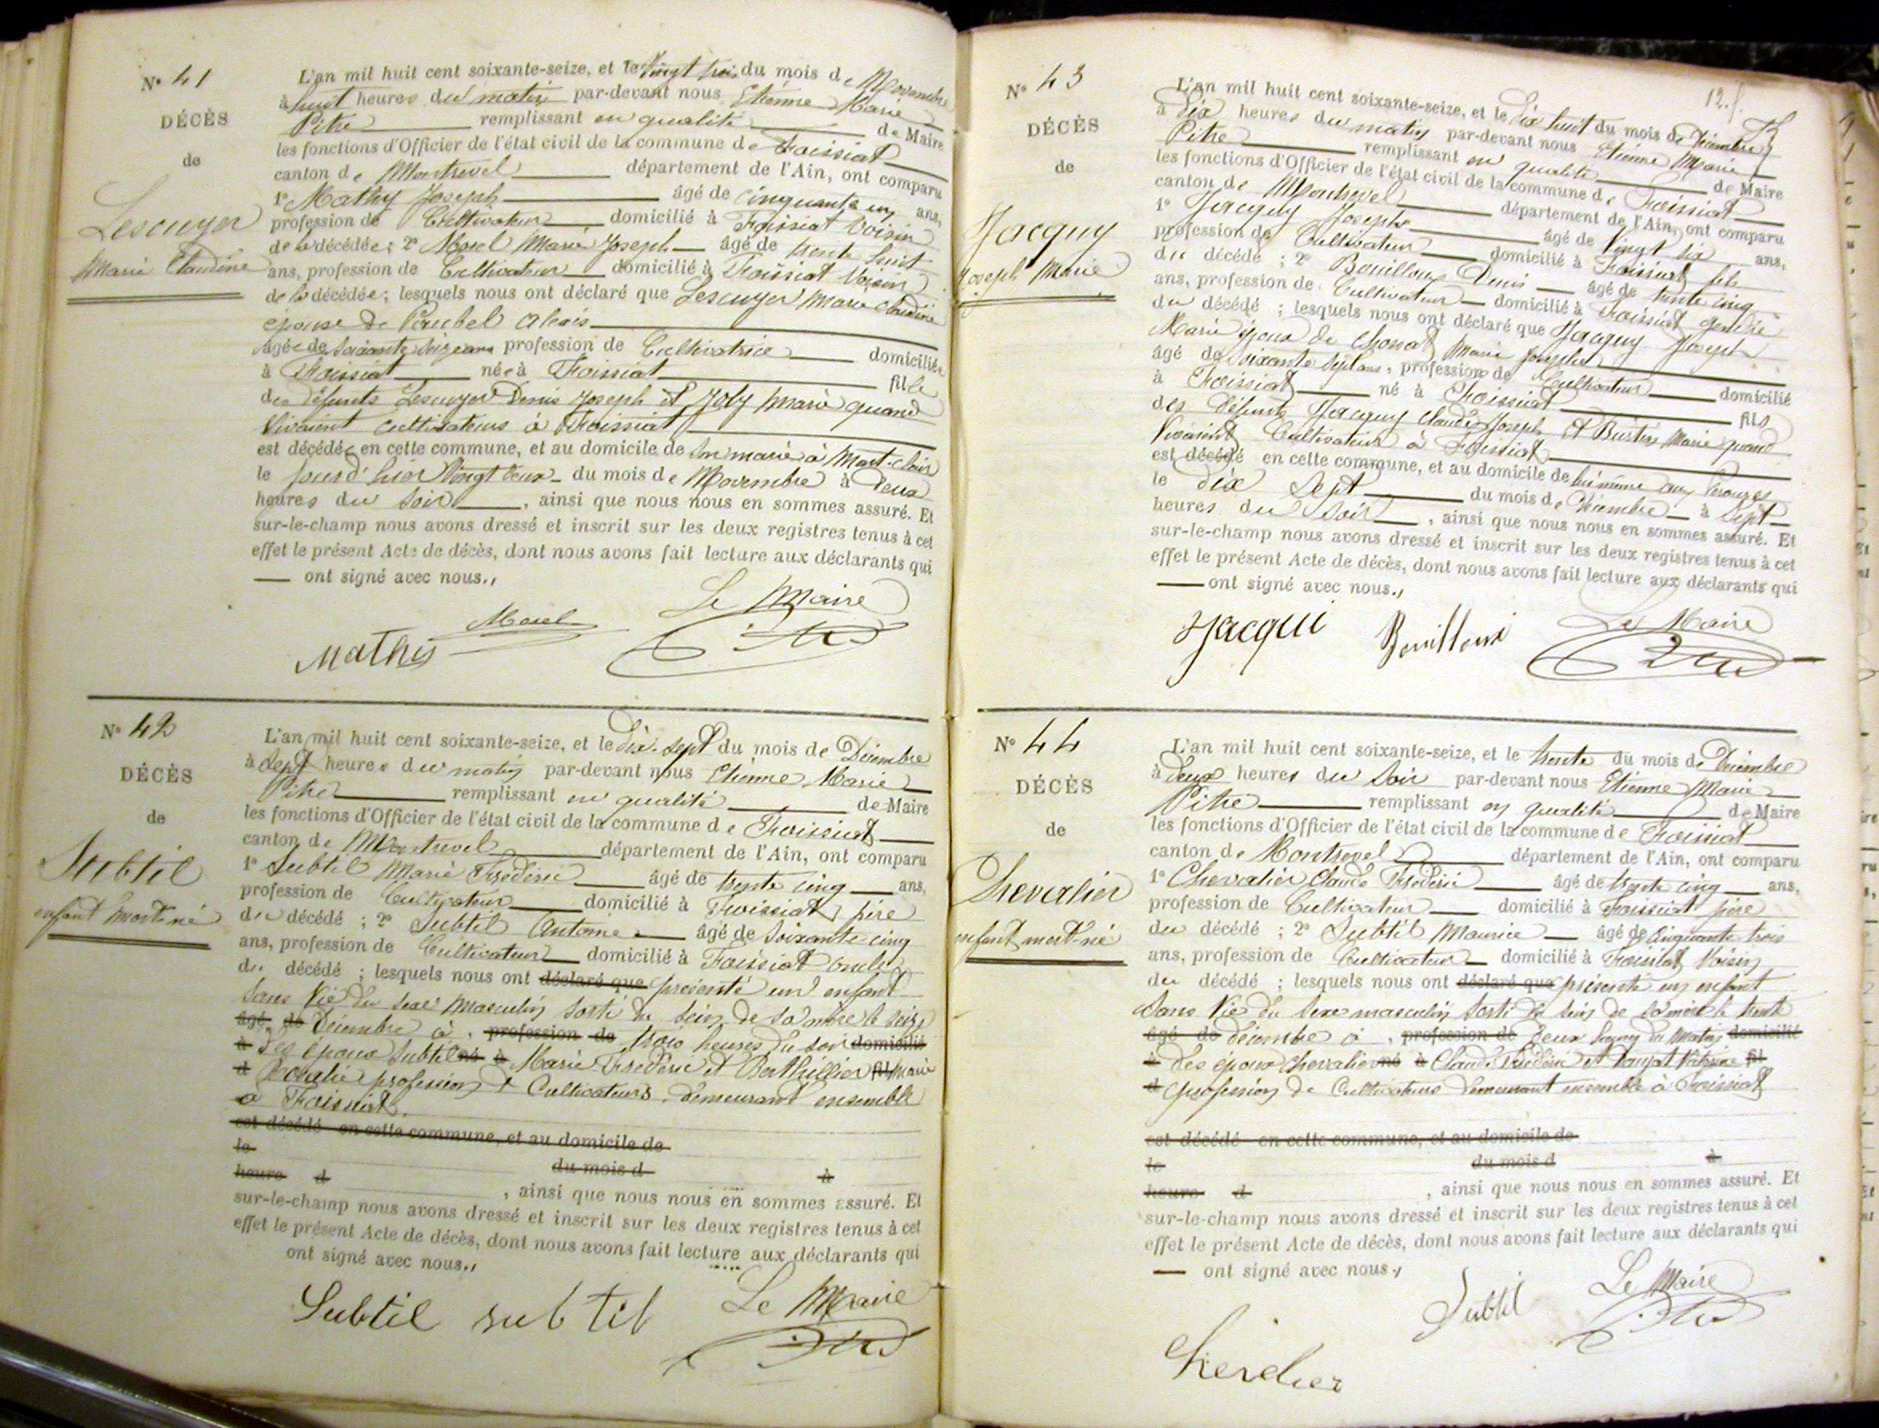 N° 41
DÉCÈS
de
Lescuyer
Marie Claudine
L'an mil huit cent soixante-seize, et le vingt trois du mois de Novembre
à huit heures du matin par-devant nous Etienne Marie
Pitre remplissant en qualité de Maire
les fonctions d'Officier de l'état civil de la commune de Foissiat
canton de Montrevel département de l'Ain, ont comparu
1° Mathy Joseph âgé de cinquante un ans,
profession de Cultivateur domicilié à Foissiat voisin
de la décédée ; 2° Morel Marie Joseph âgé de trente huit
ans, profession de Cultivateur domicilié à Foissiat Voisin
de la décédée ; lesquels nous ont déclaré que Lescuyer Marie Claudine
épouse de Peubel Alexis
âgée de soixante seize ans profession de Cultivatrice domiciliée
à Foissiat née à Foissiat fille
des défunts Lescuyer Denis Joseph et Joly Marie quand
Vivaient cultivateurs à Foissiat
est décédée en cette commune, et au domicile de son marie à Mont-clair
le jourd'hier Vingt deux du mois de Novembre à Deux
heures du Soir , ainsi que nous nous en sommes assuré. Et
sur-le-champ nous avons dressé et inscrit sur les deux registres tenus à cet
effet le présent Acte de décès, dont nous avons fait lecture aux déclarants qui
— ont signé avec nous.,
Morel Le Maire
Mathy
N° 42
DÉCÈS
de
Subtil
enfant mort né
L'an mil huit cent soixante-seize, et le dix-sept du mois de Décembre
à Sept heures du matin par-devant nous Etienne Marie
Pitre remplissant en qualité de Maire
les fonctions d'Officier de l'état civil de la commune de Foissiat
canton de Montrevel département de l'Ain, ont comparu
1° Subtil Marie Frédéric âgé de trente cinq ans,
profession de Cultivateur domicilié à Foissiat père
du décédé ; 2° Subtil Antoine âgé de soixante cinq
ans, profession de Cultivateur domicilié à Foissiat oncle
du décédé ; lesquels nous ont déclaré que présenté un enfant
sans Vie du sexe masculin sorti du sein de sa mère le seize
âgé de Décembre à , profession de trois heures du soir domicilié
à des époux Subtil né à Marie Frédéric et Berthillier fil Marie
d profession de Cultivateurs demeurant ensemble
à Foissiat.
est décédé en cette commune, et au domicile de
le du mois d à
heure d , ainsi que nous nous en sommes assuré. Et
sur-le-champ nous avons dressé et inscrit sur les deux registres tenus à cet
effet le présent Acte de décès, dont nous avons fait lecture aux déclarants qui
ont signé avec nous.,
Subtil subtil Le Maire
12.
N° 43
DÉCÈS
de
Jacquy
Joseph Marie
L'an mil huit cent soixante-seize, et le dix huit du mois de Décembre
à Dix heures du matin par-devant nous Etienne Marie
Pitre remplissant en qualité de Maire
les fonctions d'Officier de l'état civil de la commune de Foissiat
canton de Montrevel département de l'Ain, ont comparu
1° Jacquy Joseph âgé de Vingt six ans,
profession de Cultivateur domicilié à Foissiat fils
du décédé ; 2° Bouilloux Denis âgé de trente cinq
ans, profession de Cultivateur domicilié à Foissiat gendre
du décédé ; lesquels nous ont déclaré que Jacquy Joseph
Marie époux de Chonat Marie Josephte
âgé de soixante sept ans, profession de Cultivateur domicilié
à Foissiat né à Foissiat fils
des Défunts Jacquy Claude Joseph et Marie quand
Vivaient Cultivateurs à Foissiat
est décédé en cette commune, et au domicile de lui même aux
le dix Sept du mois de Décembre à Sept
heures du soir , ainsi que nous nous en sommes assuré. Et
sur-le-champ nous avons dressé et inscrit sur les deux registres tenus à cet
effet le présent Acte de décès, dont nous avons fait lecture aux déclarants qui
— ont signé avec nous.,
Jacqui Bouilloux Le Maire
N° 44
DÉCÈS
de
Chevalier
enfant mort-né
L'an mil huit cent soixante-seize, et le trente du mois de Décembre
à deux heures du Soir par-devant nous Etienne Marie
Pitre remplissant en qualité de Maire
les fonctions d'Officier de l'état civil de la commune de Foissiat
canton de Montrevel département de l'Ain, ont comparu
1° Chevalier Claude Frédéric âgé de trente cinq ans,
profession de Cultivateur domicilié à Foissiat père
du décédé ; 2° Subtil Maurice âgé de cinquante trois
ans, profession de Cultivateur domicilié à Foissiat Voisin
du décédé ; lesquels nous ont déclaré que présenté un enfant
sans Vie du sexe masculin sorti du sein de sa mère le trente
âgé de décembre à , profession de Deux heures du Matin domicilié
à des époux Chevalier né à Claude Frédéric et fil
d profession de Cultivateurs demeurant ensemble à Foissiat
est décédé en cette commune, et au domicile de
le du mois d à
heure d , ainsi que nous nous en sommes assuré. Et
sur-le-champ nous avons dressé et inscrit sur les deux registres tenus à cet
effet le présent Acte de décès, dont nous avons fait lecture aux déclarants qui
— ont signé avec nous.,
Subtil Le Maire